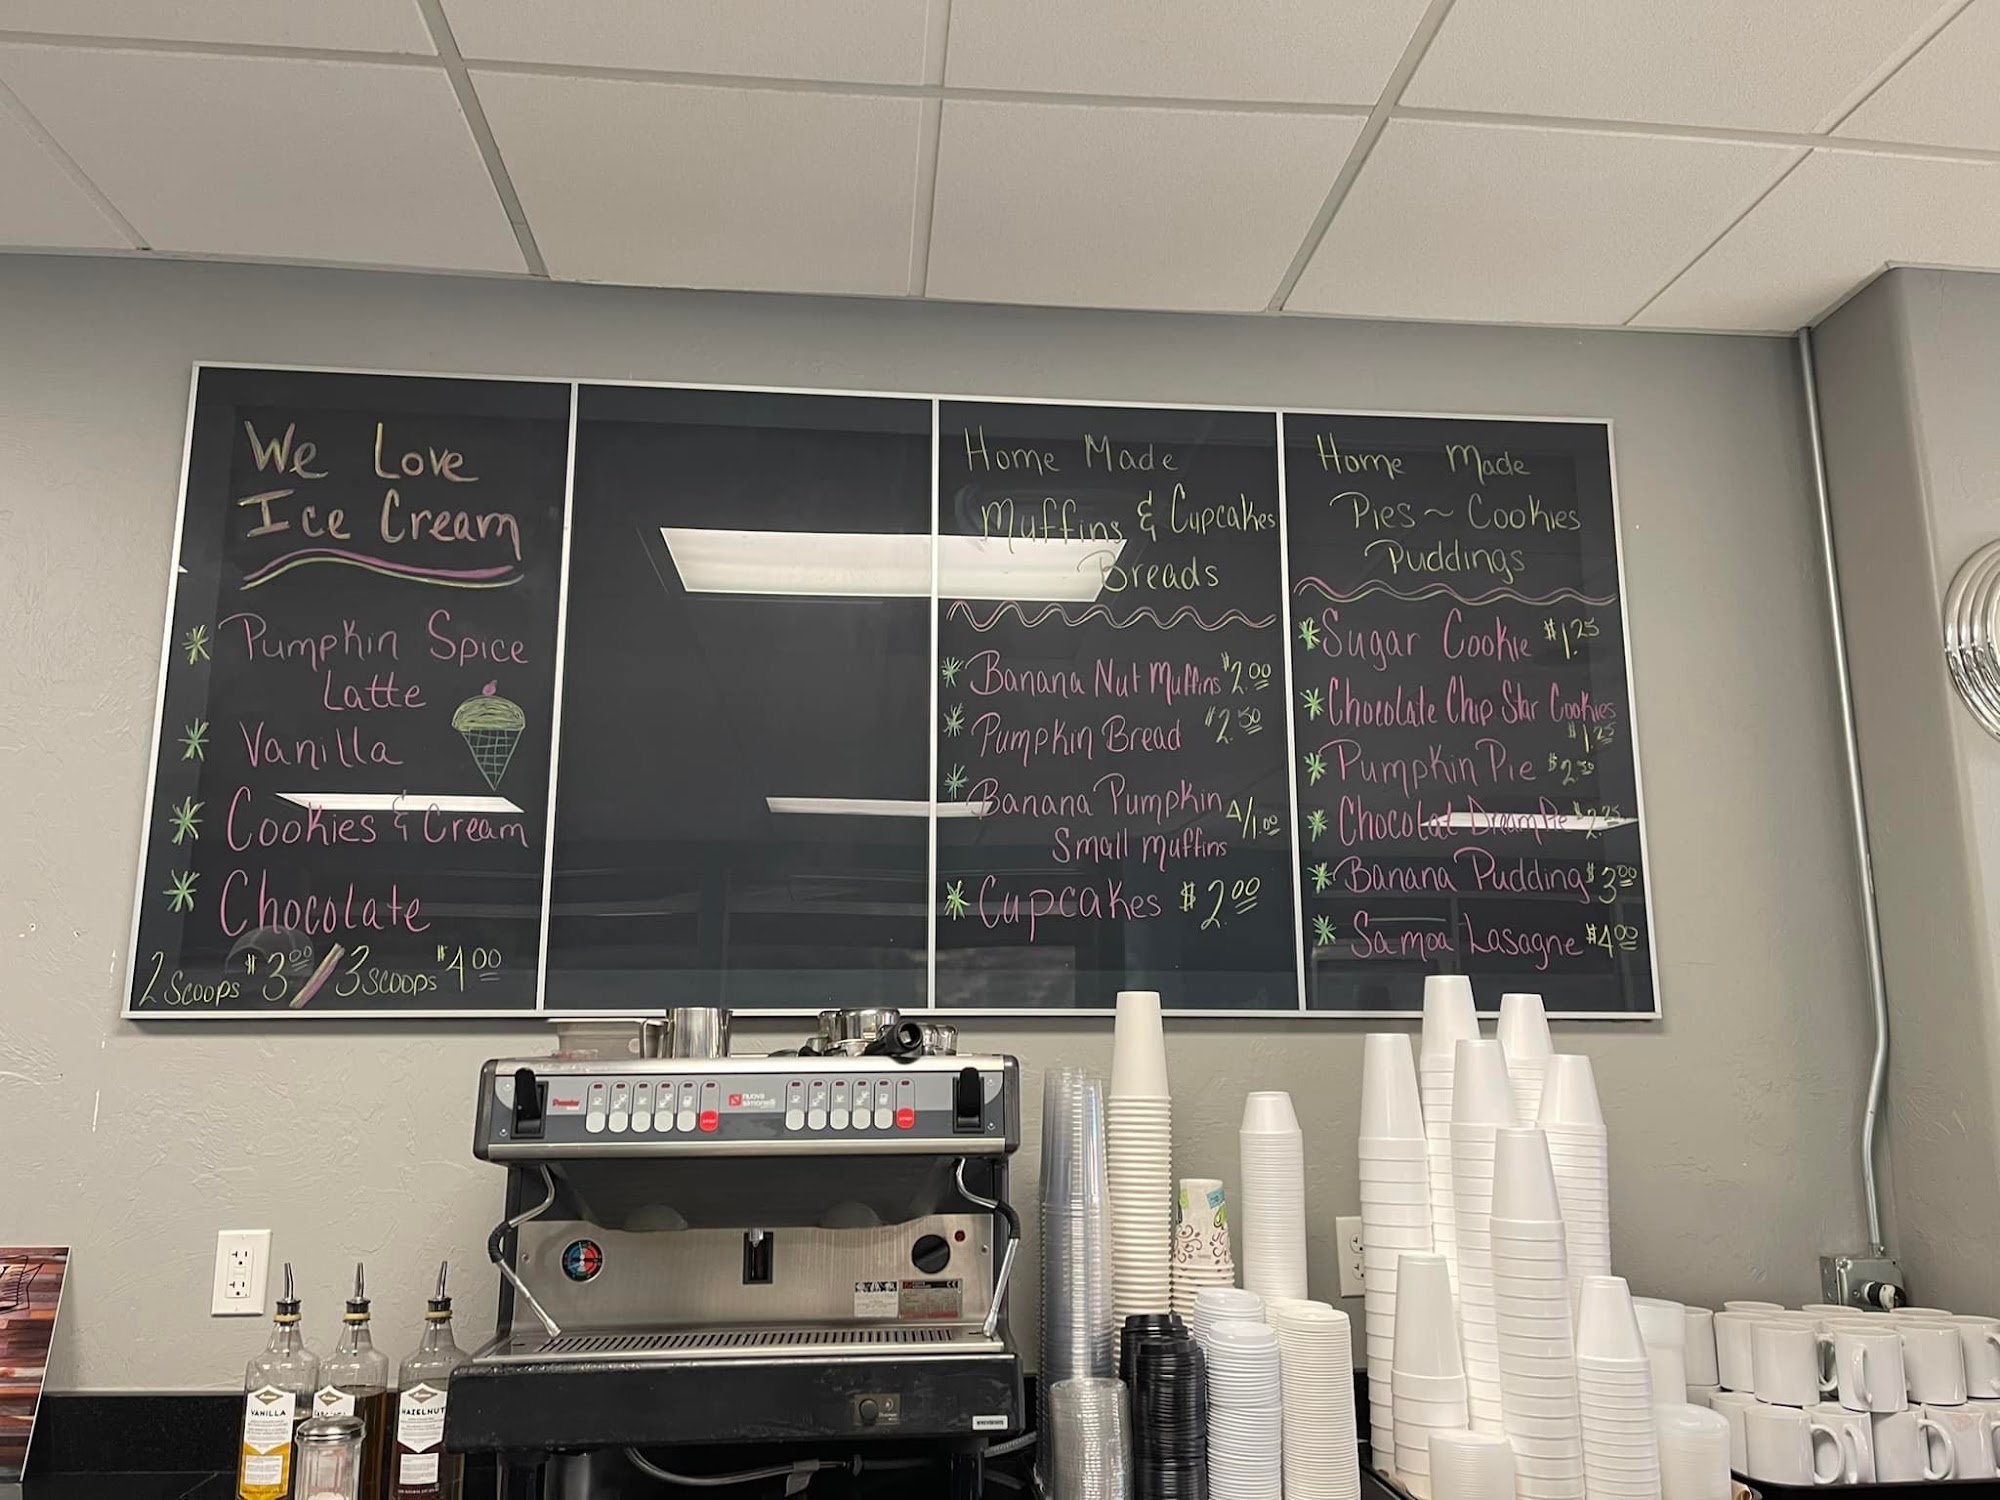 We Love
Ice Cream
* Pumpkin Spice
Latte
* Vanilla
* Cookies & Cream
* Chocolate
2 Scoops $3.00 / 3 Scoops $4.00
Home Made
Muffins & Cupcakes
Breads
* Banana Nut Muffins $2.00
* Pumpkin Bread $2.50
* Banana Pumpkin
Small Muffins 4/1.00
* Cupcakes $2.00
Home Made
Pies ~ Cookies
Puddings
* Sugar Cookie $1.25
* Chocolate Chip Star Cookies
$1.25
* Pumpkin Pie $2.50
* Chocolat Dream Pie $2.25
* Banana Pudding $3.00
* Samoa Lasagne $4.00
nuova
simonelli
STOP
STOP
VANILLA
HAZELNUT